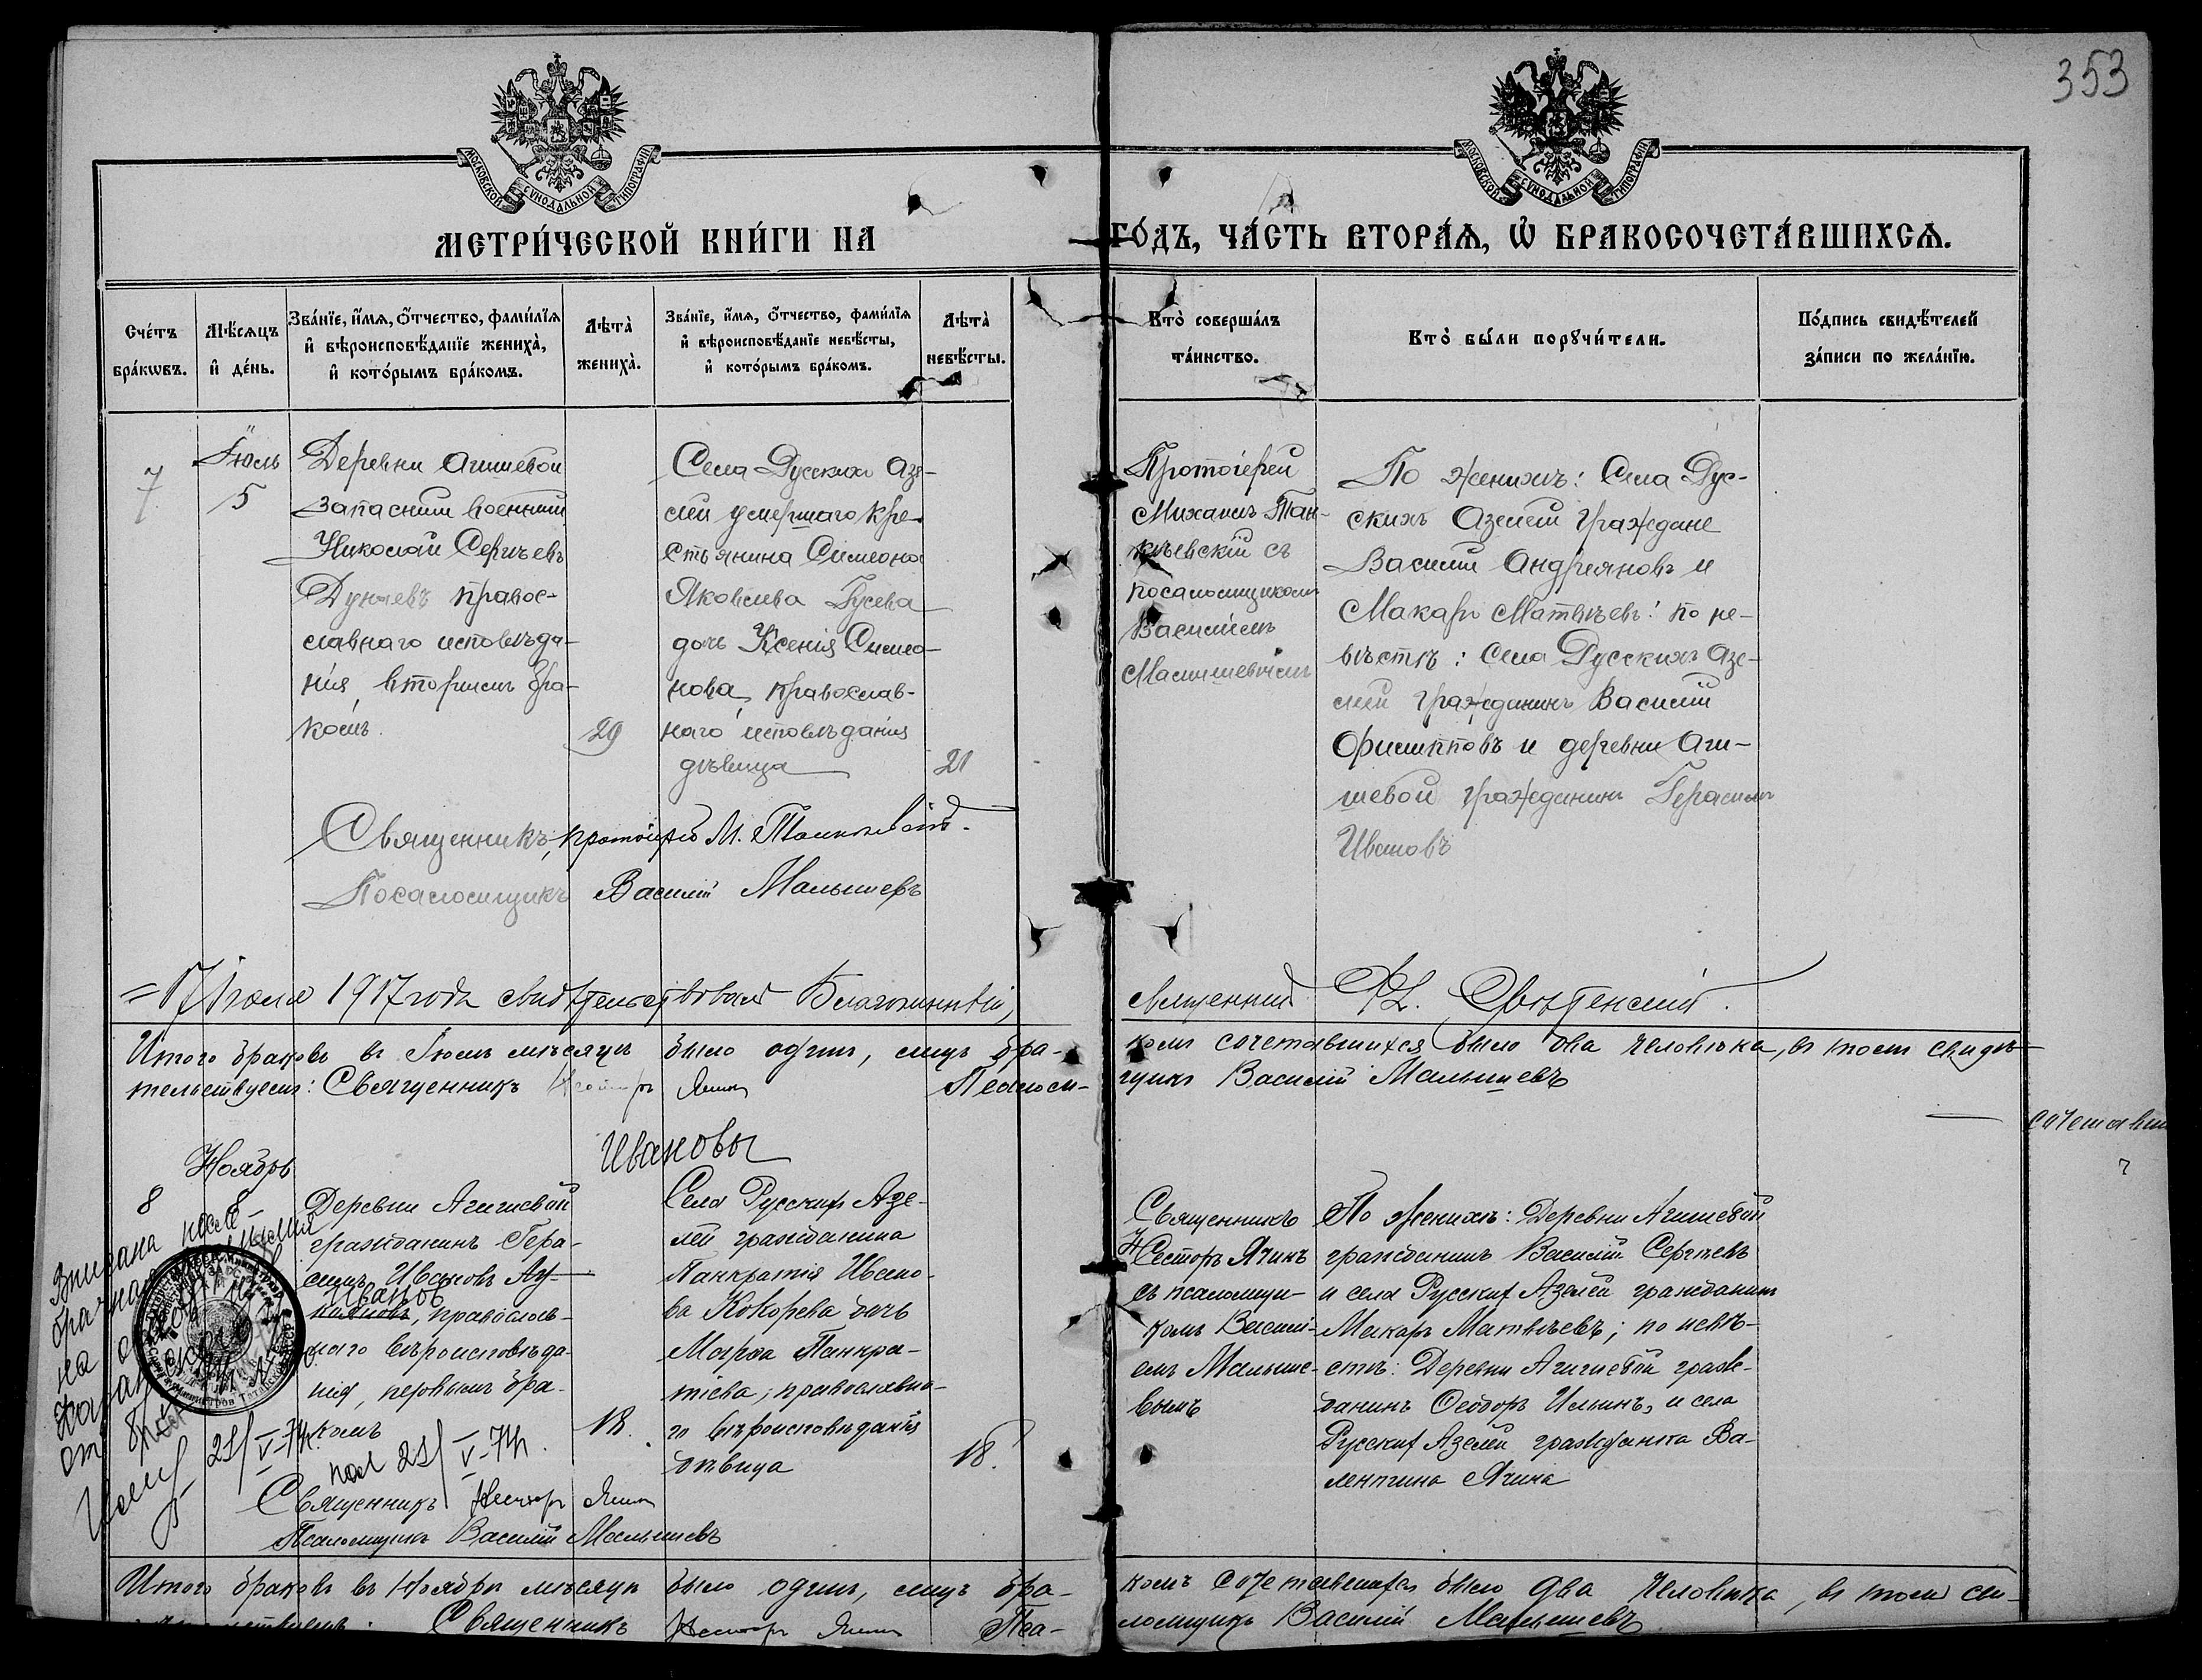 353
МОСКОВСКОЙ СѴНОДАЛЬНОЙ ТИПОГРАФІИ
МОСКОВСКОЙ СѴНОДАЛЬНОЙ ТИПОГРАФІИ
МЕТРИ́ЧЕСКОЙ КНИ́ГИ НА
ГО́ДЪ, ЧА́СТЬ ВТОРА́Ѧ, Ѡ҆ БРАКОСОЧЕТА́ВШИХСѦ.
Сче́тъ
бра́кѡвъ.
Мѣ́сѧцъ
и҆ де́нь.
Зва́нїе, и҆́мѧ, ѻ҆́тчество, фами́лїѧ
и҆ вѣроисповѣ́данїе жениха̀,
и҆ кото́рымъ бра́комъ.
Лѣта̀
жениха̀.
Зва́нїе, и҆́мѧ, ѻ҆́тчество, фами́лїѧ
и҆ вѣроисповѣ́данїе невѣ́сты,
и҆ кото́рымъ бра́комъ.
Лѣта̀
невѣ́сты.
Кто̀ соверша́лъ
та́инство.
Кто̀ бы́ли порꙋчи́тели.
По́дпись свидѣ́телей
за́писи по жела́нїю.
7
Іюль
5
Деревни Агишевой
запасный военный
Николай Сергѣевъ
Дунаевъ правос-
славнаго исповѣда-
нія, вторымъ бра-
комъ.
29
Села Русскихъ Азе-
лей умершаго кре-
стьянина Симеона
Яковлева Гусева
дочь Ксенія Симео-
нова, православ-
наго исповѣданія
дѣвица
21
Протоіерей
Михаилъ
съ
псаломщикомъ
Василіемъ
Малышевымъ
По женихѣ: Села Рус-
скихъ Азелей граждане
Василій Андріяновъ и
Макаръ Матвѣевъ: по не-
вѣстѣ: Села Русскихъ Азе-
лей гражданинъ Василій
Филипповъ и деревни Аги-
шевой гражданинъ Герасимъ
Ивановъ
Священникъ, протоіерей М.
Псаломщикъ Василій Малышевъ
17 Іюля 1917 года свидѣтельствовалъ Благочинный,
священникъ
Итого браковъ въ Іюлѣ мѣсяцѣ было одинъ, лицъ бра-
комъ сочетавшихся было два человѣка, въ томъ свидѣ-
тельствуемъ: Священникъ Несторъ Ячинъ Псалом-
щикъ Василій Малышевъ
сочетавш
Ноябрь
Ивановы
8
8
Деревни Агишевой
гражданинъ Гера-
симъ Ивановъ Лу-
Иванов
православ-
наго вѣроисповѣда-
нія, первымъ бра-
комъ
18.
Села Русскихъ Азе-
лей гражданина
Панкратія Ивано-
ва Кокорева дочь
Марѳа Панкра-
тіева, православна-
го вѣроисповѣданія
дѣвица
18.
Священникъ
Несторъ Ячинъ
съ псаломщи-
комъ Василі-
емъ Малыше-
вымъ
По женихѣ: Деревни Агишевой
гражданинъ Василій Сергѣевъ
и села Русскихъ Азелей гражданинъ
Макаръ Матвѣевъ; по невѣ-
стѣ: Деревни Агишевой граж-
данинъ Ѳеодоръ Ильинъ, и села
Русскихъ Азелей гражданка Ва-
лентина Ячина
фамилия
брачная
на
от
21/V-74г.
21/V-74г.
Священникъ Несторъ Ячинъ
Псаломщикъ Василій Малышевъ
Итого браковъ въ Ноябрѣ мѣсяцѣ было одинъ, лицъ бра-
комъ сочетавшихся было два человѣка, въ томъ сви-
Священникъ Несторъ Ячинъ Пса-
ломщикъ Василій Малышевъ